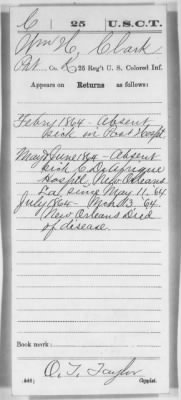 C | 25 | U.S.C.T.
Wm H. Clark
Pvt, Co. K, 25 Reg't U. S. Colored Inf.
Appears on Returns as follows:
Febry 1864 - Absent
sick in Post Hospl.
May & June 1864 - Absent
sick C D'Afrique
Hospl. New Orleans
La. since May 11, 64
July 1864 - 13, 64.
New Orleans Died
of disease.
Book mark:
O. T. Taylor
(546) Copyist.